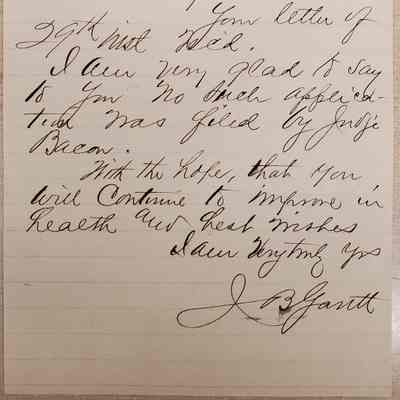 Your letter of
29th inst Rec'd.
I am very glad to say
to you no such applica-
tion was filed by Judge
Bacon.
With the hope, that you
will Continue to improve in
health and best wishes
I am Very truly yrs
J B Gantt